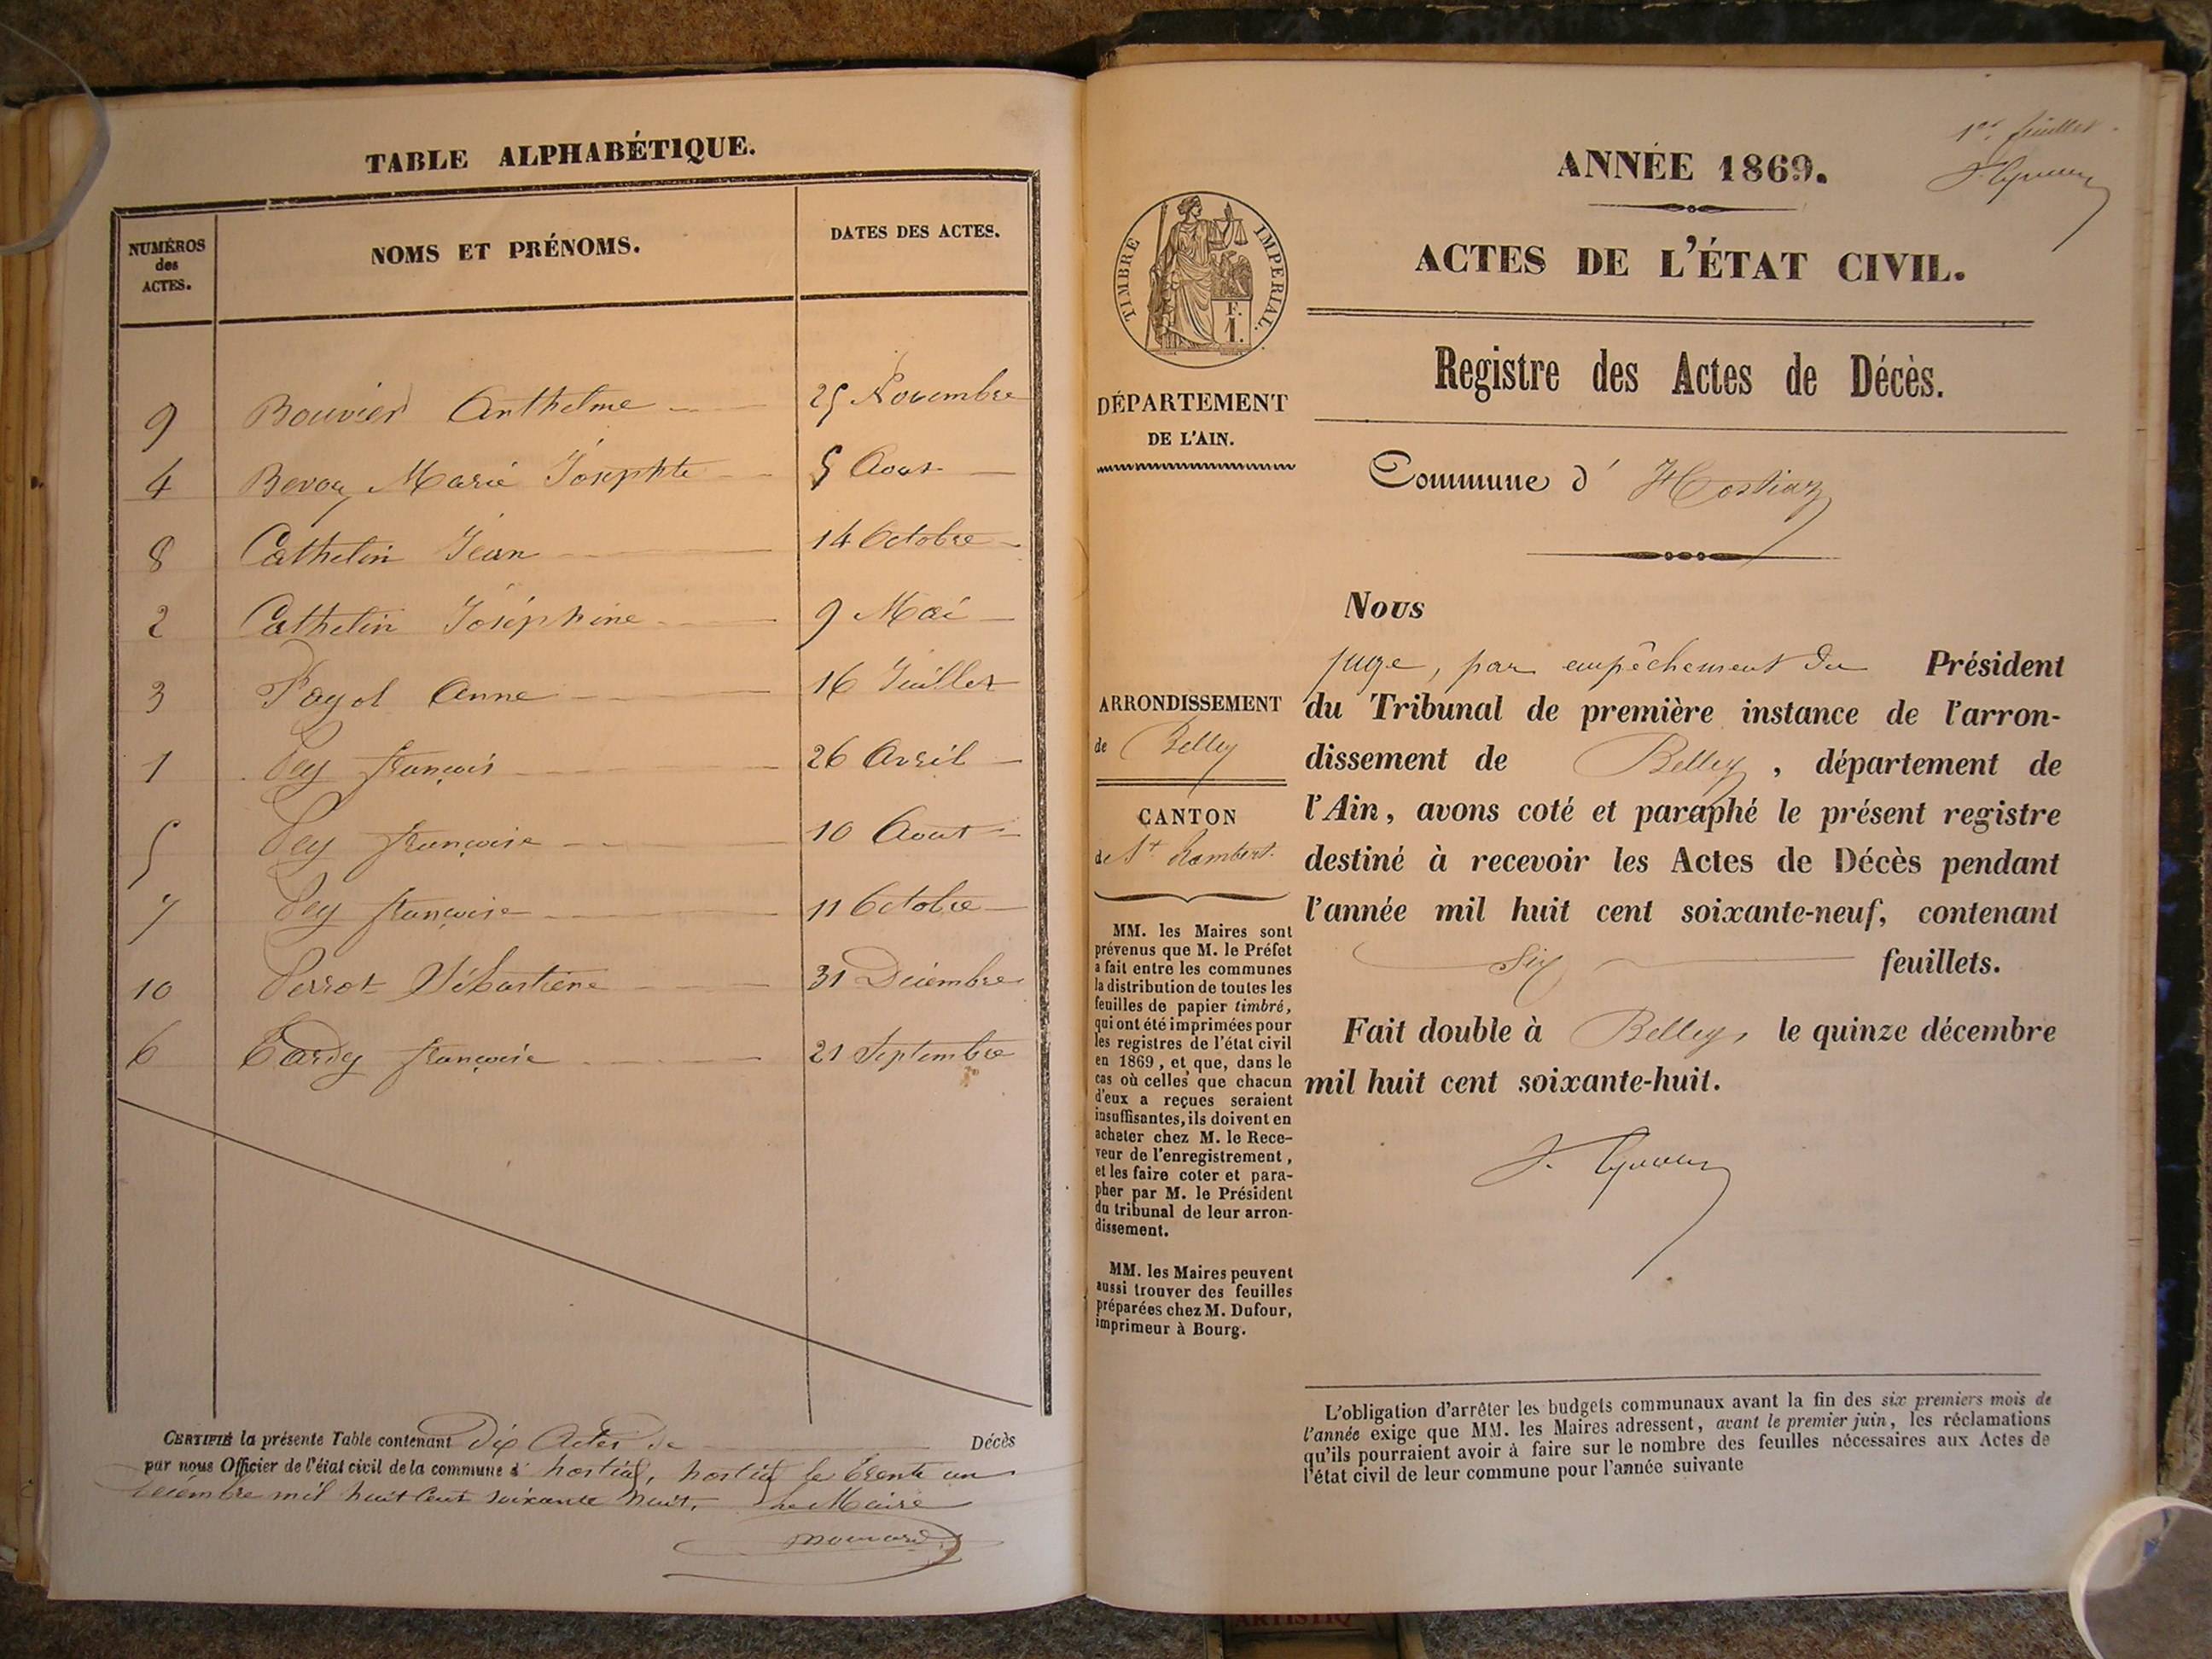 TABLE ALPHABÉTIQUE.
NUMÉROS
des
ACTES.
NOMS ET PRÉNOMS.
DATES DES ACTES.
9 Bouvier Anthelme 25 Novembre
4 Marie Josephte 5 Aout
8 Cathelin Jean 14 Octobre
2 Cathelin Joséphine 9 Mai
3 Payol Anne 16 Juillet
1 Pey françois 26 Avril
5 Pey françoise 10 Aout
7 Pey françoise 11 Octobre
10 Perrot Sébastiene 31 Décembre
6 Tardy françoise 21 Septembre
CERTIFIÉ la présente Table contenant Dix Actes de Décès
par nous Officier de l'état civil de la commune d' hostiaz, hostiaz le trente un
décembre mil huit cent soixante huit. Le Maire
1er feuillet.
ANNÉE 1869.
TIMBRE IMPERIAL.
F.
1.
ACTES DE L'ÉTAT CIVIL.
Registre des Actes de Décès.
DÉPARTEMENT
DE L'AIN.
Commune d' Hostiaz
Nous
juge, par empêchement du Président
du Tribunal de première instance de l'arron-
dissement de Belley, département de
l'Ain, avons coté et paraphé le présent registre
destiné à recevoir les Actes de Décès pendant
l'année mil huit cent soixante-neuf, contenant
Six feuillets.
Fait double à Belley, le quinze décembre
mil huit cent soixante-huit.
ARRONDISSEMENT
de Belley
CANTON
de St Rambert.
MM. les Maires sont
prévenus que M. le Préfet
a fait entre les communes
la distribution de toutes les
feuilles de papier timbré,
qui ont été imprimées pour
les registres de l'état civil
en 1869, et que, dans le
cas où celles que chacun
d'eux a reçues seraient
insuffisantes, ils doivent en
acheter chez M. le Rece-
veur de l'enregistrement,
et les faire coter et para-
pher par M. le Président
du tribunal de leur arron-
dissement.
MM. les Maires peuvent
aussi trouver des feuilles
préparées chez M. Dufour,
imprimeur à Bourg.
L'obligation d'arrêter les budgets communaux avant la fin des six premiers mois de
l'année exige que MM. les Maires adressent, avant le premier juin, les réclamations
qu'ils pourraient avoir à faire sur le nombre des feuilles nécessaires aux Actes de
l'état civil de leur commune pour l'année suivante
ARTISTIQ